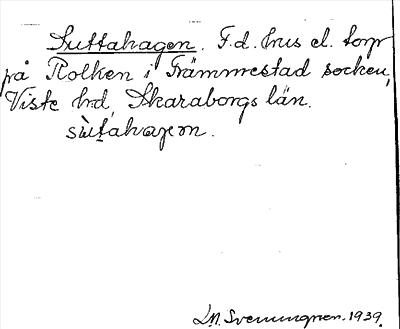 Suttahagen. F.d. hus el. torp
på Rolken i Främmestad socken,
Viste hd, Skaraborgs län.
sùt̠ahaʒɛn.
Sveningsen. 1939.